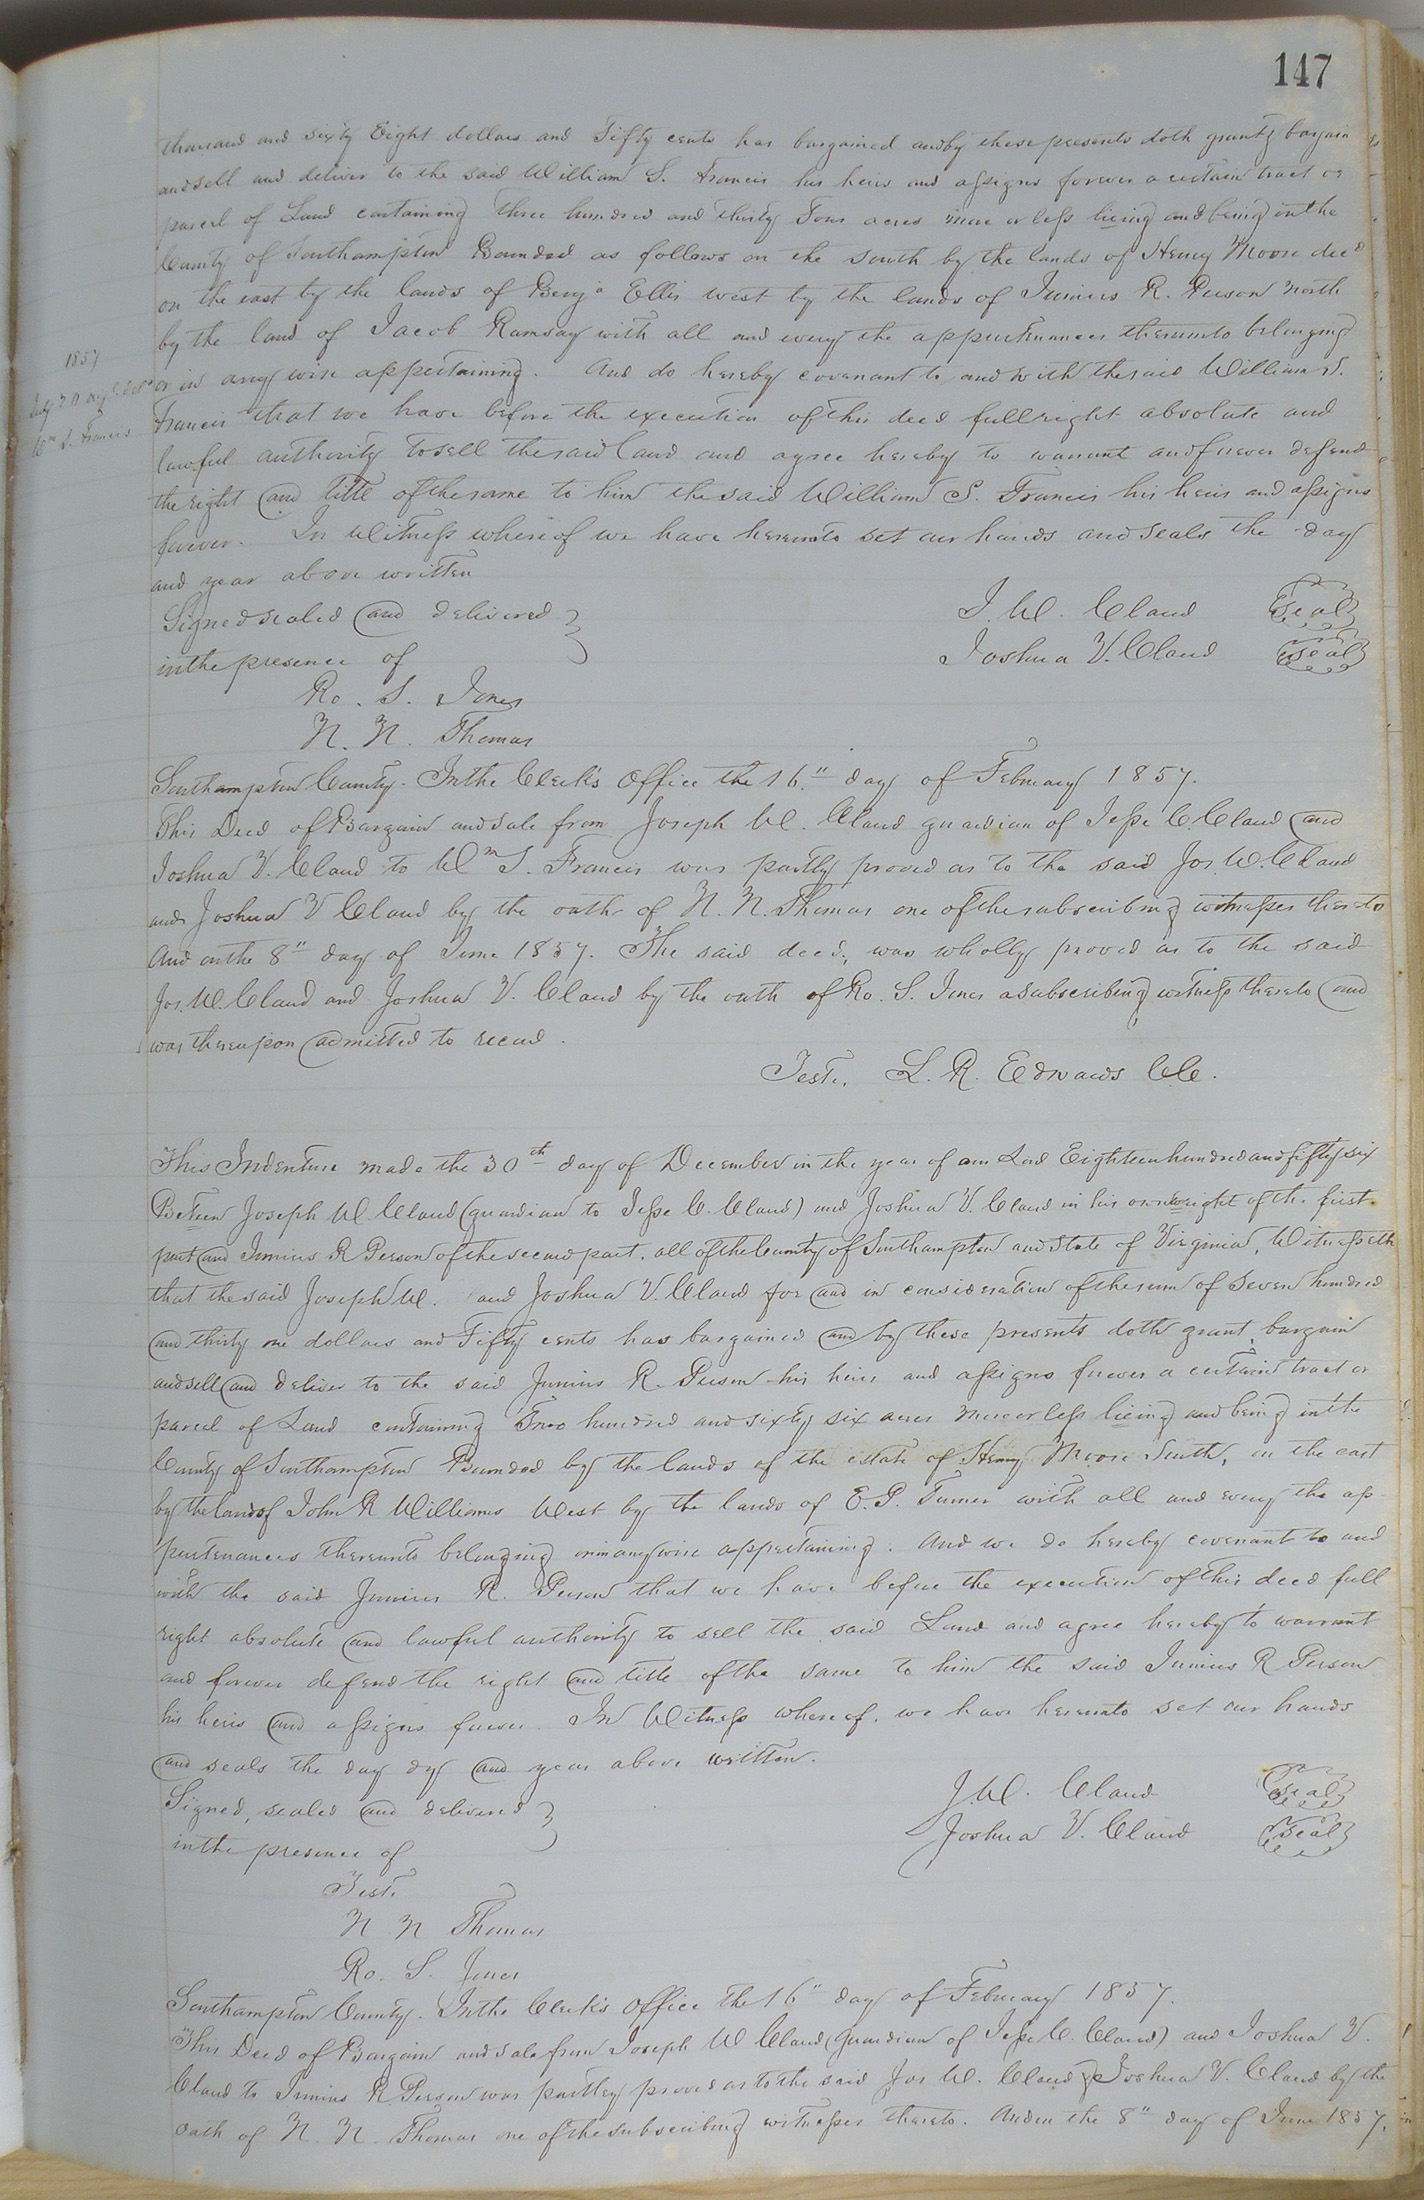 147
thousand and sixty Eight dollars and Fifty cents has bargained and by these presents doth grant, bargain
and sell and deliver to the said William S. Francis his heirs and assigns forever a certain tract or
parcel of Land containing three hundred and thirty Four acres more or less lieing and being in the
County of Southampton Bounded as follows on the south by the lands of Henry Moore decd
on the east by the lands of Benja Ellis west by the lands of Junius R. Person north
by the land of Jacob Ramsay with all and every the appurtenances thereunto belonging
1857
or in any wise appertaining. And do hereby covenant to and with the said William S.
Wm S. Francis
Francis that we have before the execution of this deed full right absolute and
lawful authority to sell the said land and agree hereby to warrant and forever defend
the right and title of the same to him the said William S. Francis his heirs and assigns
forever. In Witness whereof we have hereunto set our hands and seals the day
and year above written
Signed sealed and delivered
in the presence of
J. W. Claud Seal
Joshua V. Claud Seal
Ro. S. Jones
N. N. Thomas
Southampton County. In the Clerk's Office the 16" day of February 1857.
This Deed of Bargain and sale from Joseph W. Claud guardian of Jesse C. Claud and
Joshua V. Claud to Wm S. Francis was partly proved as to the said Jos. W. Claud
and Joshua V Claud by the oath of N. N. Thomas one of the subscribing witnesses thereto
And on the 8" day of June 1857. The said deed, was wholly proved as to the said
Jos. W. Claud and Joshua V. Claud by the oath of Ro. S. Jones a subscribing witness thereto and
was thereupon admitted to record.
Teste, L. R. Edwards CC.
This Indenture made the 30th day of December in the year of our Lord Eighteen hundred and fifty six
Between Joseph W. Claud (guardian to Jesse C. Claud) and Joshua V. Claud in his own right of the first
part and Junius R Person of the second part. all of the County of Southampton and State of Virginia, Witnesseth
that the said Joseph W. and Joshua V. Claud for and in consideration of the sum of Seven hundred
and thirty one dollars and Fifty cents has bargained and by these presents doth grant, bargain
and sell and deliver to the said Junius R. Person his heirs and assigns forever a certain tract or
parcel of Land containing Two hundred and sixty six acres more or less lieing and being in the
County of Southampton Bounded by the lands of the estate of Henry Moore South, on the east
by the lands of John R Williams West by the lands of E. P. Turner with all and every the ap-
purtenances thereunto belonging or in any wise appertaining. And we do hereby covenant to and
with the said Junius R. Person that we have before the execution of this deed full
right absolute and lawful authority to sell the said Land and agree hereby to warrant
and forever defend the right and title of the same to him the said Junius R Person
his heirs and assigns forever. In Witness whereof, we have hereunto set our hands
and seals the day dy and year above written.
Signed, sealed and delivered
in the presence of
J. W. Claud Seal
Joshua V. Claud Seal
Test.
N N Thomas
Ro. S. Jones
Southampton County. In the Clerk's Office the 16" day of February 1857.
This Deed of Bargain and sale from Joseph W Claud (Guardian of Jesse C. Claud) and Joshua V.
Claud to Junius R. Person was partly proved as to the said Jos W. Claud & Joshua V. Claud by the
oath of N. N. Thomas one of the subscribing witnesses thereto. And on the 8" day of June 1857.